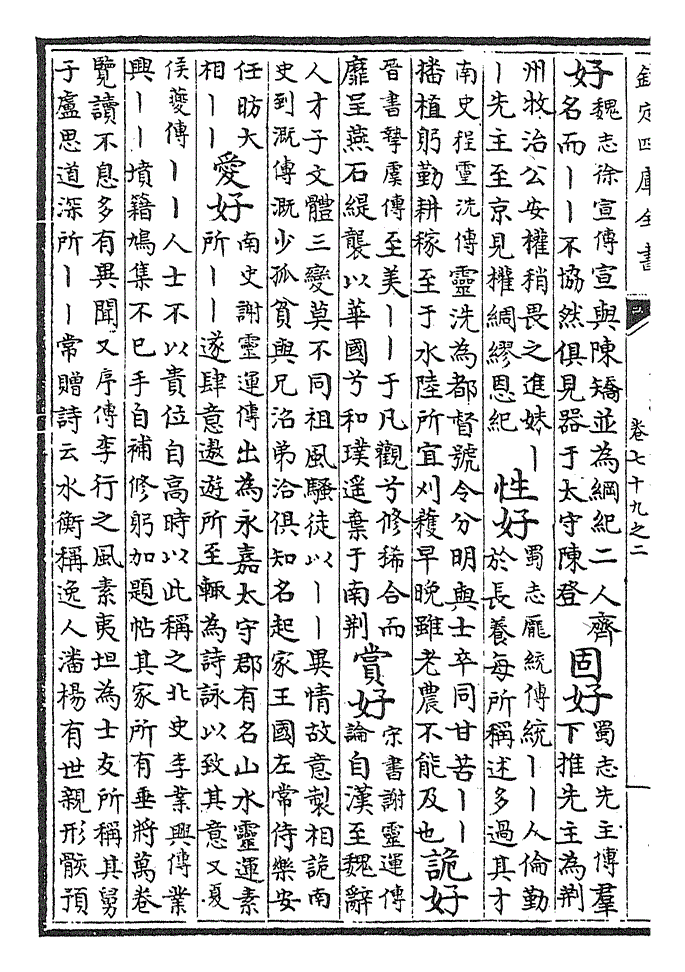 欽定四庫全書
卷七十九之二
好
魏志徐宣傳宣與陳矯並為綱紀二人齊
名而丨丨不協然俱見器于太守陳登
固好
蜀志先主傳羣
下推先主為荆
州牧治公安權稍畏之進妹丨
丨先主至京見權綢繆恩紀
性好
蜀志龐統傳統丨丨人倫勤
於長養每所稱述多過其才
南史程靈洗傳靈洗為都督號令分明與士卒同甘苦丨丨
播植躬勤耕稼至于水陸所宜刈穫早晚雖老農不能及也
詭好
晉書摯虞傳至美丨丨于凡觀兮修稀合而
靡呈燕石緹襲以華國兮和璞遥棄于南荆
賞好
宋書謝靈運傳
論自漢至魏辭
人才子文體三變莫不同祖風騷徒以丨丨異情故意製相詭南
史到溉傳溉少孤貧與兄沼弟洽俱知名起家王國左常侍樂安
任昉大
相丨丨
愛好
南史謝靈運傳出為永嘉太守郡有名山水靈運素
所丨丨遂肆意遨遊所至輒為詩詠以致其意又夏
侯夔傳丨丨人士不以貴位自高時以此稱之北史李業興傳業
興丨丨墳籍鳩集不已手自補修躬加題帖其家所有垂將萬卷
覽讀不息多有異聞又序傳李行之風素夷坦為士友所稱其舅
子盧思道深所丨丨常贈詩云水衡稱逸人潘楊有世親形骸預